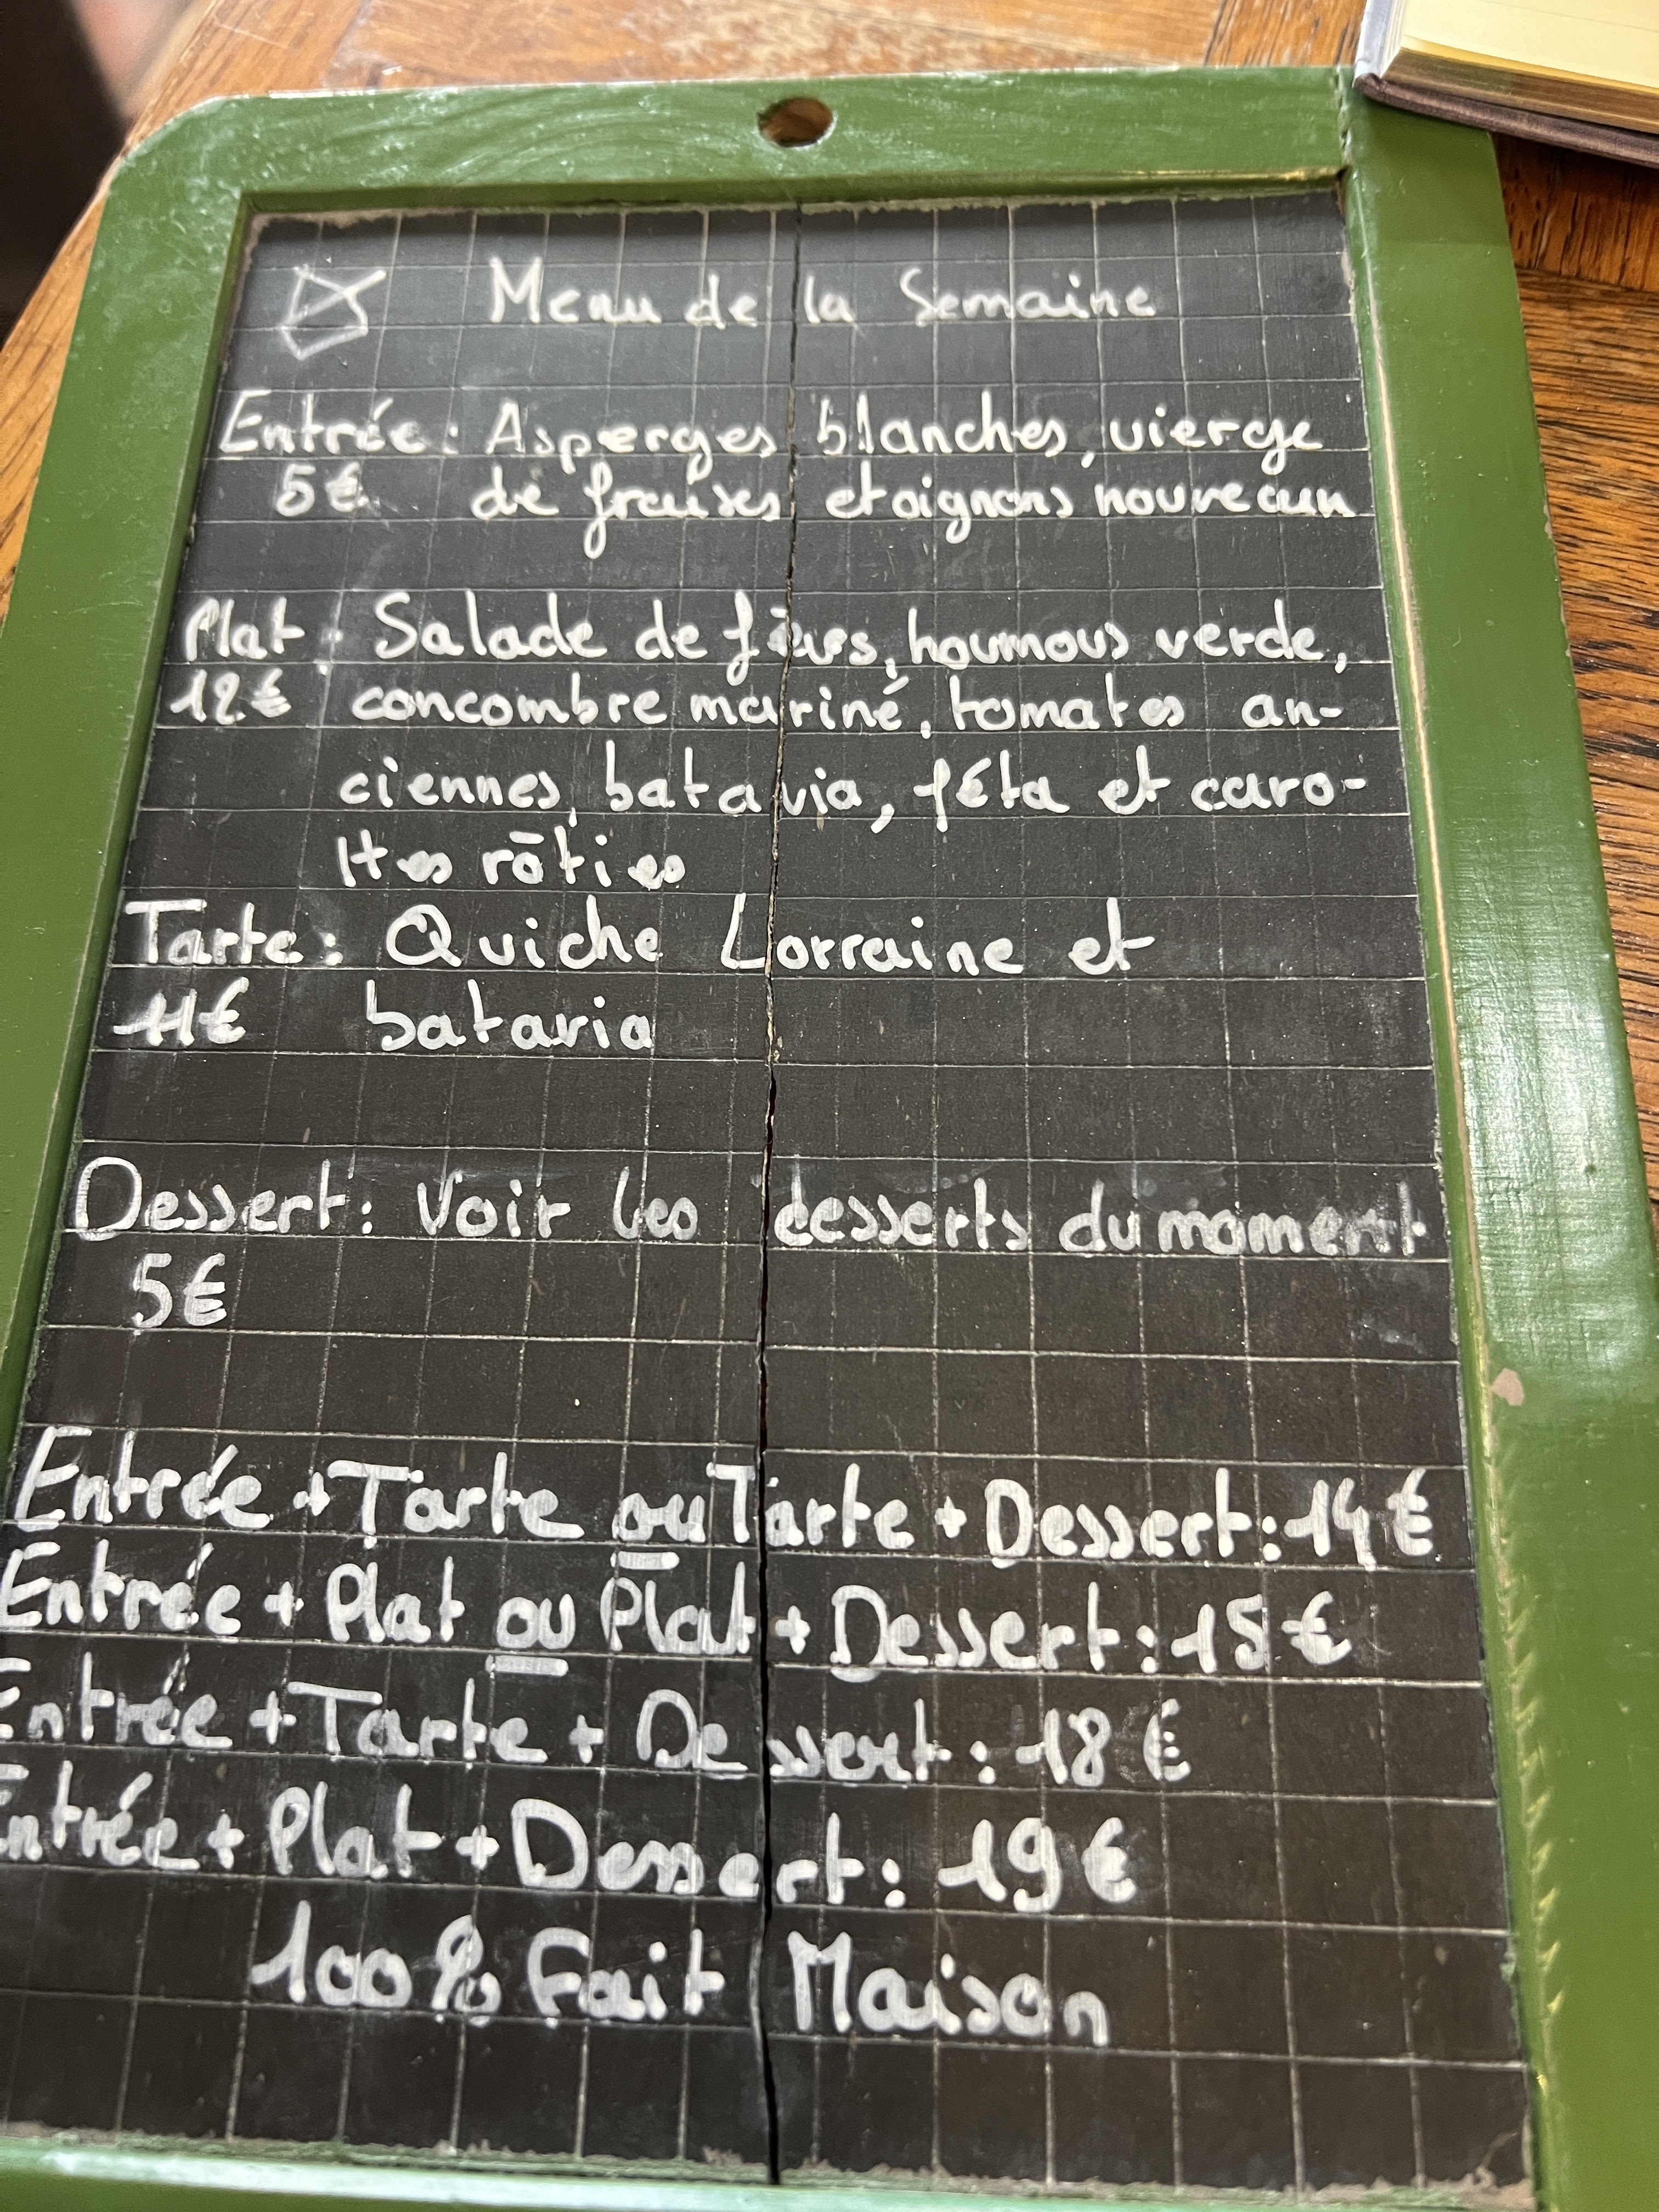 Menu de la Semaine
Entrée : Asperges blanches, vierge
5€ de fraises et oignons nouveaun
Plat : Salade de fèves, houmous verde,
12€ concombre mariné, tomates an-
ciennes, batavia, féta et caro-
ttes rōties
Tarte : Quiche Lorraine et
11€ batavia
Dessert : Voir les desserts du moment
5€
Entrée + Tarte ou Tarte + Dessert : 14€
Entrée + Plat ou Plat + Dessert : 15€
Entrée + Tarte + Dessert : 18€
Entrée + Plat + Dessert : 19€
100% Fait Maison